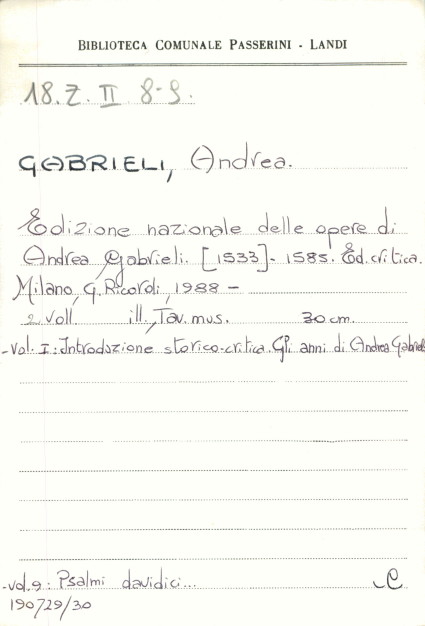 BIBLIOTECA COMUNALE PASSERINI - LANDI
18.Z. II 8-9.
GABRIELI, Andrea.
Edizione nazionale delle opere di
Andrea Gabrieli. [1533]- 1585. Ed. critica.
Milano, G. Ricordi, 1988 -
2 voll ill., Tav. mus. 30 cm.
-vol. I: Introduzione storico-critica. Gli anni di Andrea Gabrieli
-vol.9: Psalmi davidici...
190729/30